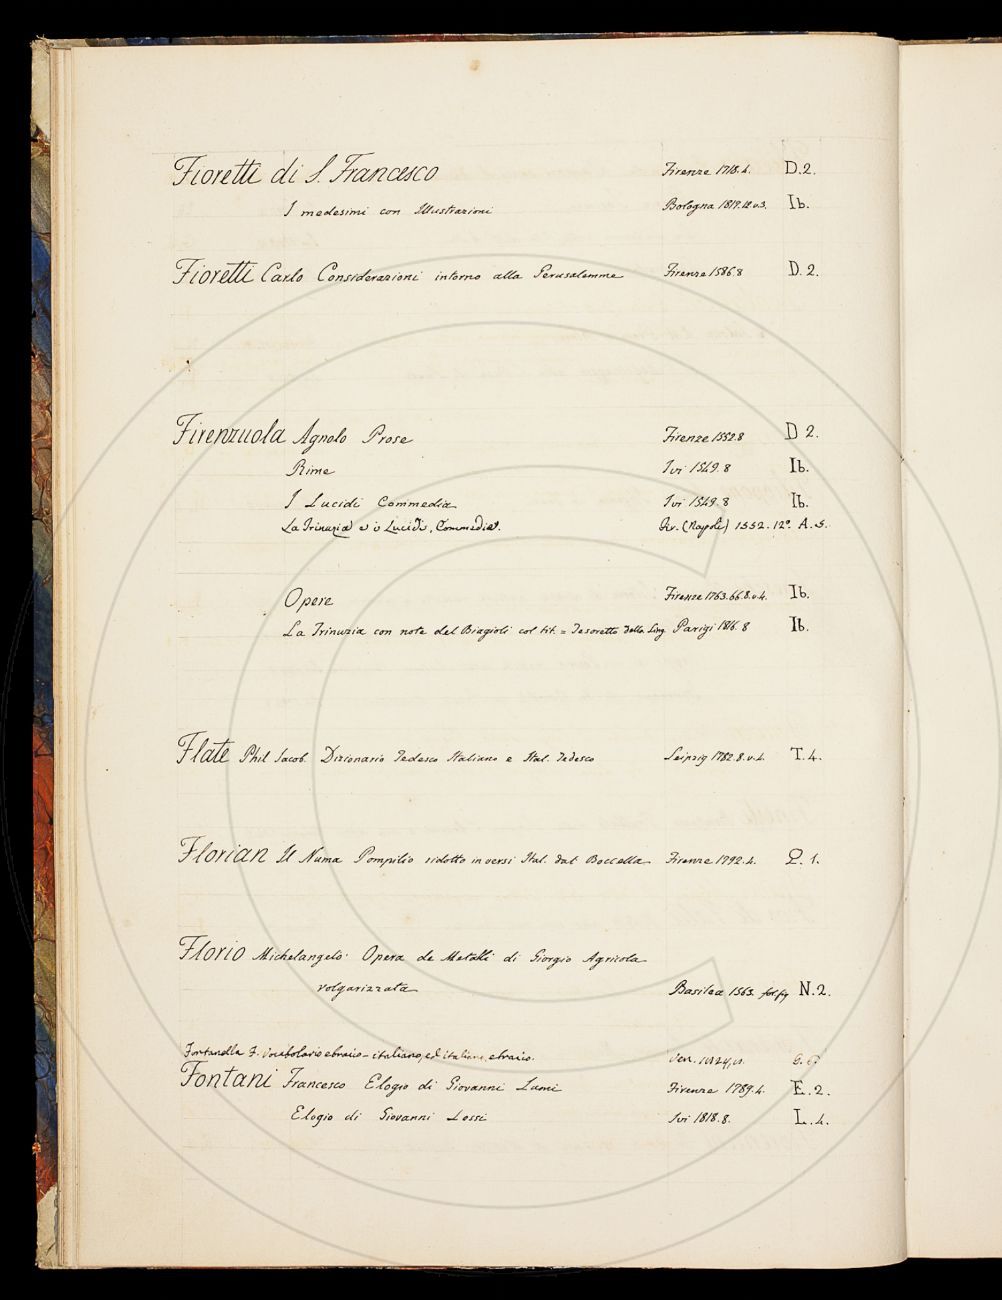 Fioretti di S. Francesco Firenze 1718.4. D.2.
I medesimi con Illustrazioni Bologna 1819.12 v.3. Ib.
Fioretti Carlo Considerazioni intorno alla Gerusalemme Firenze 1586 8 D.2.
Firenzuola Agnolo Prose Firenze 1552.8 D 2.
Rime Ivi 1549.8 Ib.
I Lucidi Commedia Ivi 1549.8 Ib.
La Trinuzia e i Lucidi, Commedie. Fir. (Napoli) 1552. 12°. A.5.
Opere Firenze 1763.66.8.v.4. Ib.
La Trinuzia con note del Biagioli col tit. = Tesoretto della Ling Parigi 1816.8 Ib.
Flate Phil Jacob. Dizionario Tedesco Italiano e Ital. Tedesco Leipzig 1782.8.v.4. T.4.
Florian Il Numa Pompilio ridotto in versi Ital. dal Boccella Firenze 1792.4. Q.1.
Florio Michelangelo Opera de Metalli di Giorgio Agricola
volgarizzata Basilea 1563. fol. fig N.2.
Fontanella F. Vocabolario ebraico-italiano, ed italiano, ebraico. Ven. G.
Fontani Francesco Elogio di Giovanni Lami Firenze 1789.4. E.2.
Elogio di Giovanni Lessi Ivi 1818.8. L.4.